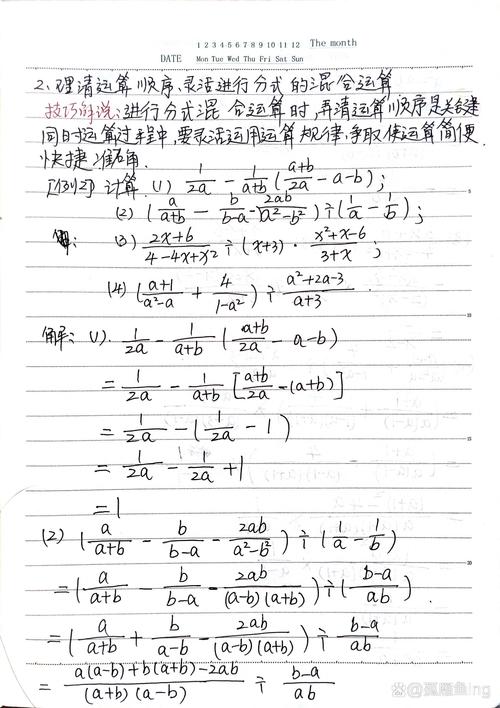 1 2 3 4 5 6 7 8 9 10 11 12 The month
DATE Mon Tue Wed Thu Fri Sat Sun
2、理清运算顺序、灵活进行分式的混合运算
技巧解说:进行分式混合运算时,弄清运算顺序是关键
同时运算过程中,要灵活运用运算规律,争取使运算简便
快捷准确.
[例2] 计算 (1) 1/2a - 1/a+b (a+b/2a - a - b);
(2) (a/a+b - b/b-a - 2ab/a²-b²) ÷ (1/a - 1/b);
(3) 2x+6/4-4x+x² ÷ (x+3) · x²+x-6/3+x;
(4) (a+1/a²-a + 4/1-a²) ÷ a²+2a-3/a+3.
解: (1). 1/2a - 1/a+b (a+b/2a - a-b)
= 1/2a - 1/a+b [a+b/2a - (a+b)]
= 1/2a - (1/2a - 1)
= 1/2a - 1/2a + 1
= 1
(2) (a/a+b - b/b-a - 2ab/a²-b²) ÷ (1/a - 1/b)
= (a/a+b - b/b-a - 2ab/(a-b)(a+b)) ÷ (b-a/ab).
= (a/a+b + b/a-b - 2ab/(a-b)(a+b)) ÷ b-a/ab
= a(a-b)+b(a+b)-2ab/(a+b)(a-b) ÷ b-a/ab